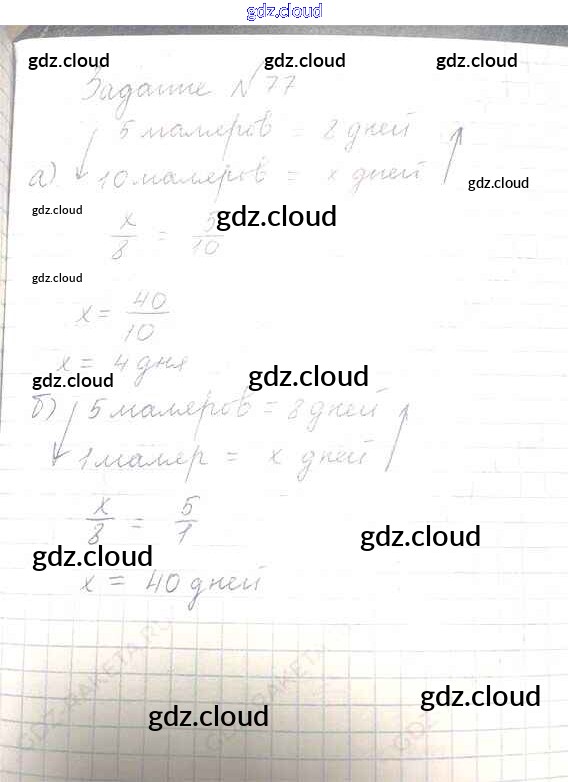 gdz.cloud
gdz.cloud gdz.cloud gdz.cloud
Задание №77
5 маляров = 8 дней
а) 10 маляров = x дней
gdz.cloud
gdz.cloud gdz.cloud
x/8 = 5/10
gdz.cloud
x = 40/10
x = 4 дня
gdz.cloud gdz.cloud
б) 5 маляров = 8 дней
1 маляр = x дней
x/8 = 5/1
gdz.cloud gdz.cloud
x = 40 дней
gdz.cloud
gdz.cloud